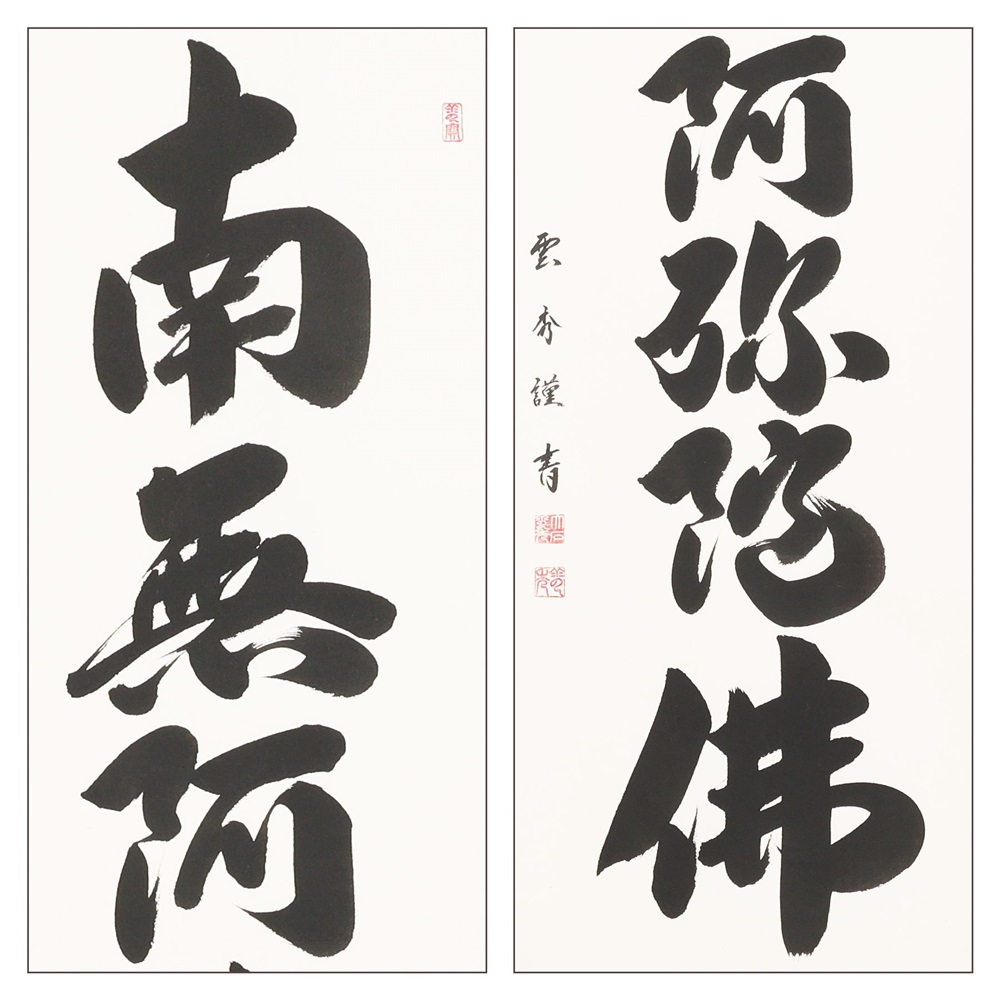 南無阿
阿弥陀佛
雲秀謹書